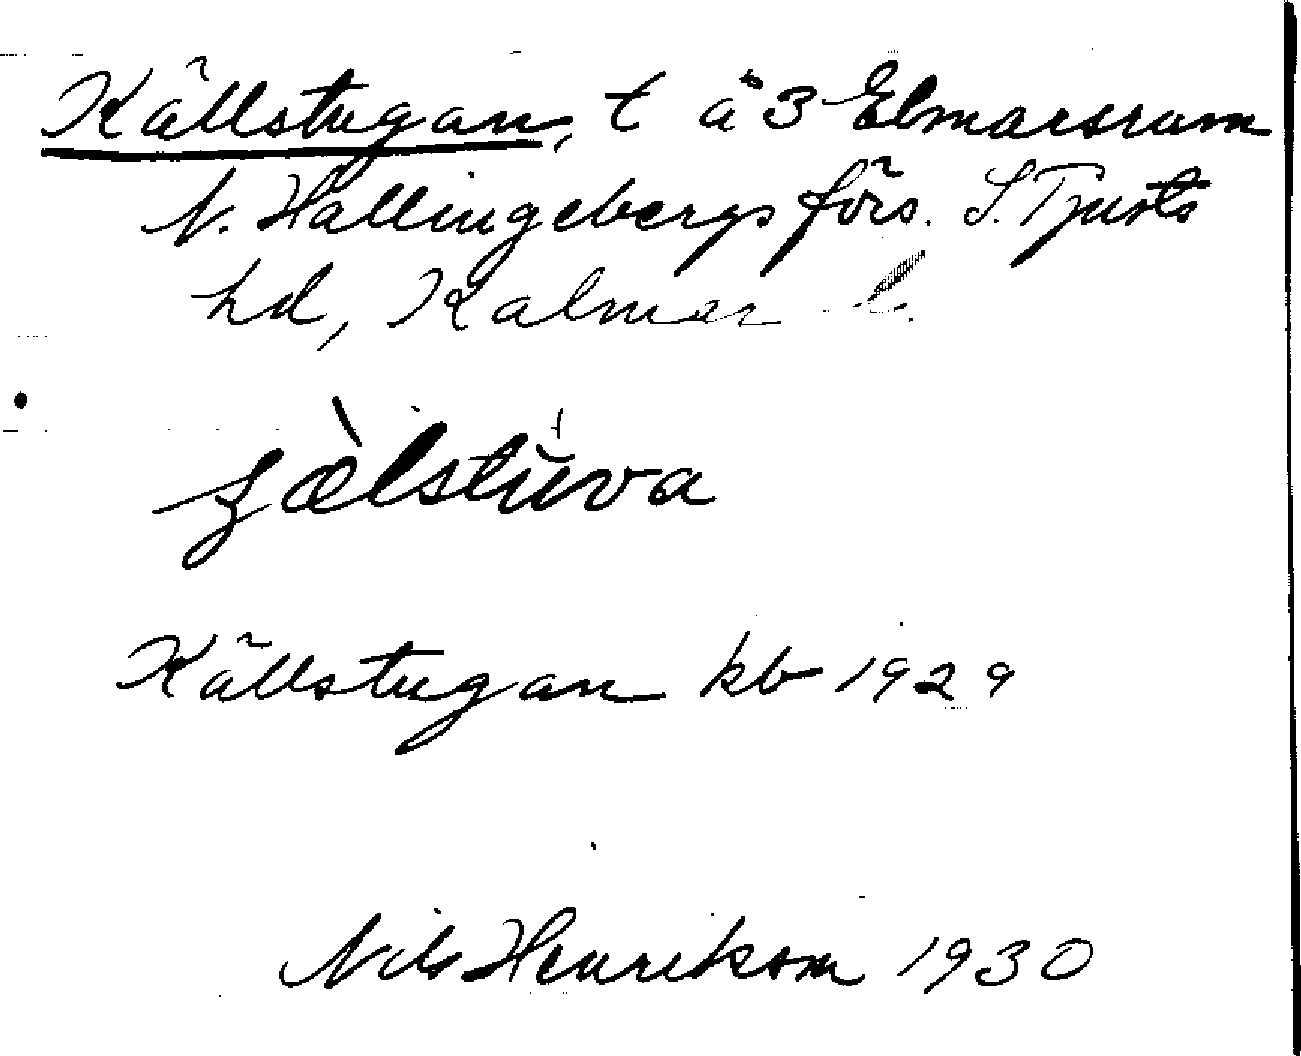 Källstugan, t å 3 Elmarsrum
N. Hallingebergs förs. S. Tjusts
hd, Kalmar l.
Källstugan kb 1929
Nils Henrikson 1930